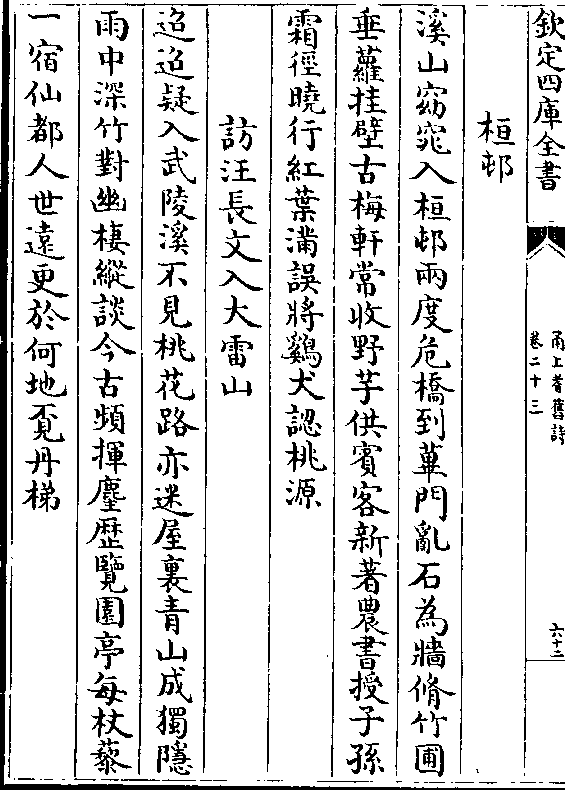 欽定四庫全書
甬上耆舊詩
卷二十三
六十二
桓邨
溪山窈窕入桓邨兩度危橋到蓽門亂石為牆脩竹圃
垂蘿挂壁古梅軒常收野芋供賓客新著農書授子孫
霜徑曉行紅葉滿誤將鷄犬認桃源
訪汪長文入大雷山
迢迢疑入武陵溪不見桃花路亦迷屋裏青山成獨隱
雨中深竹對幽棲縱談今古頻揮麈歴覽園亭每杖藜
一宿仙都人世遠更於何地覔丹梯